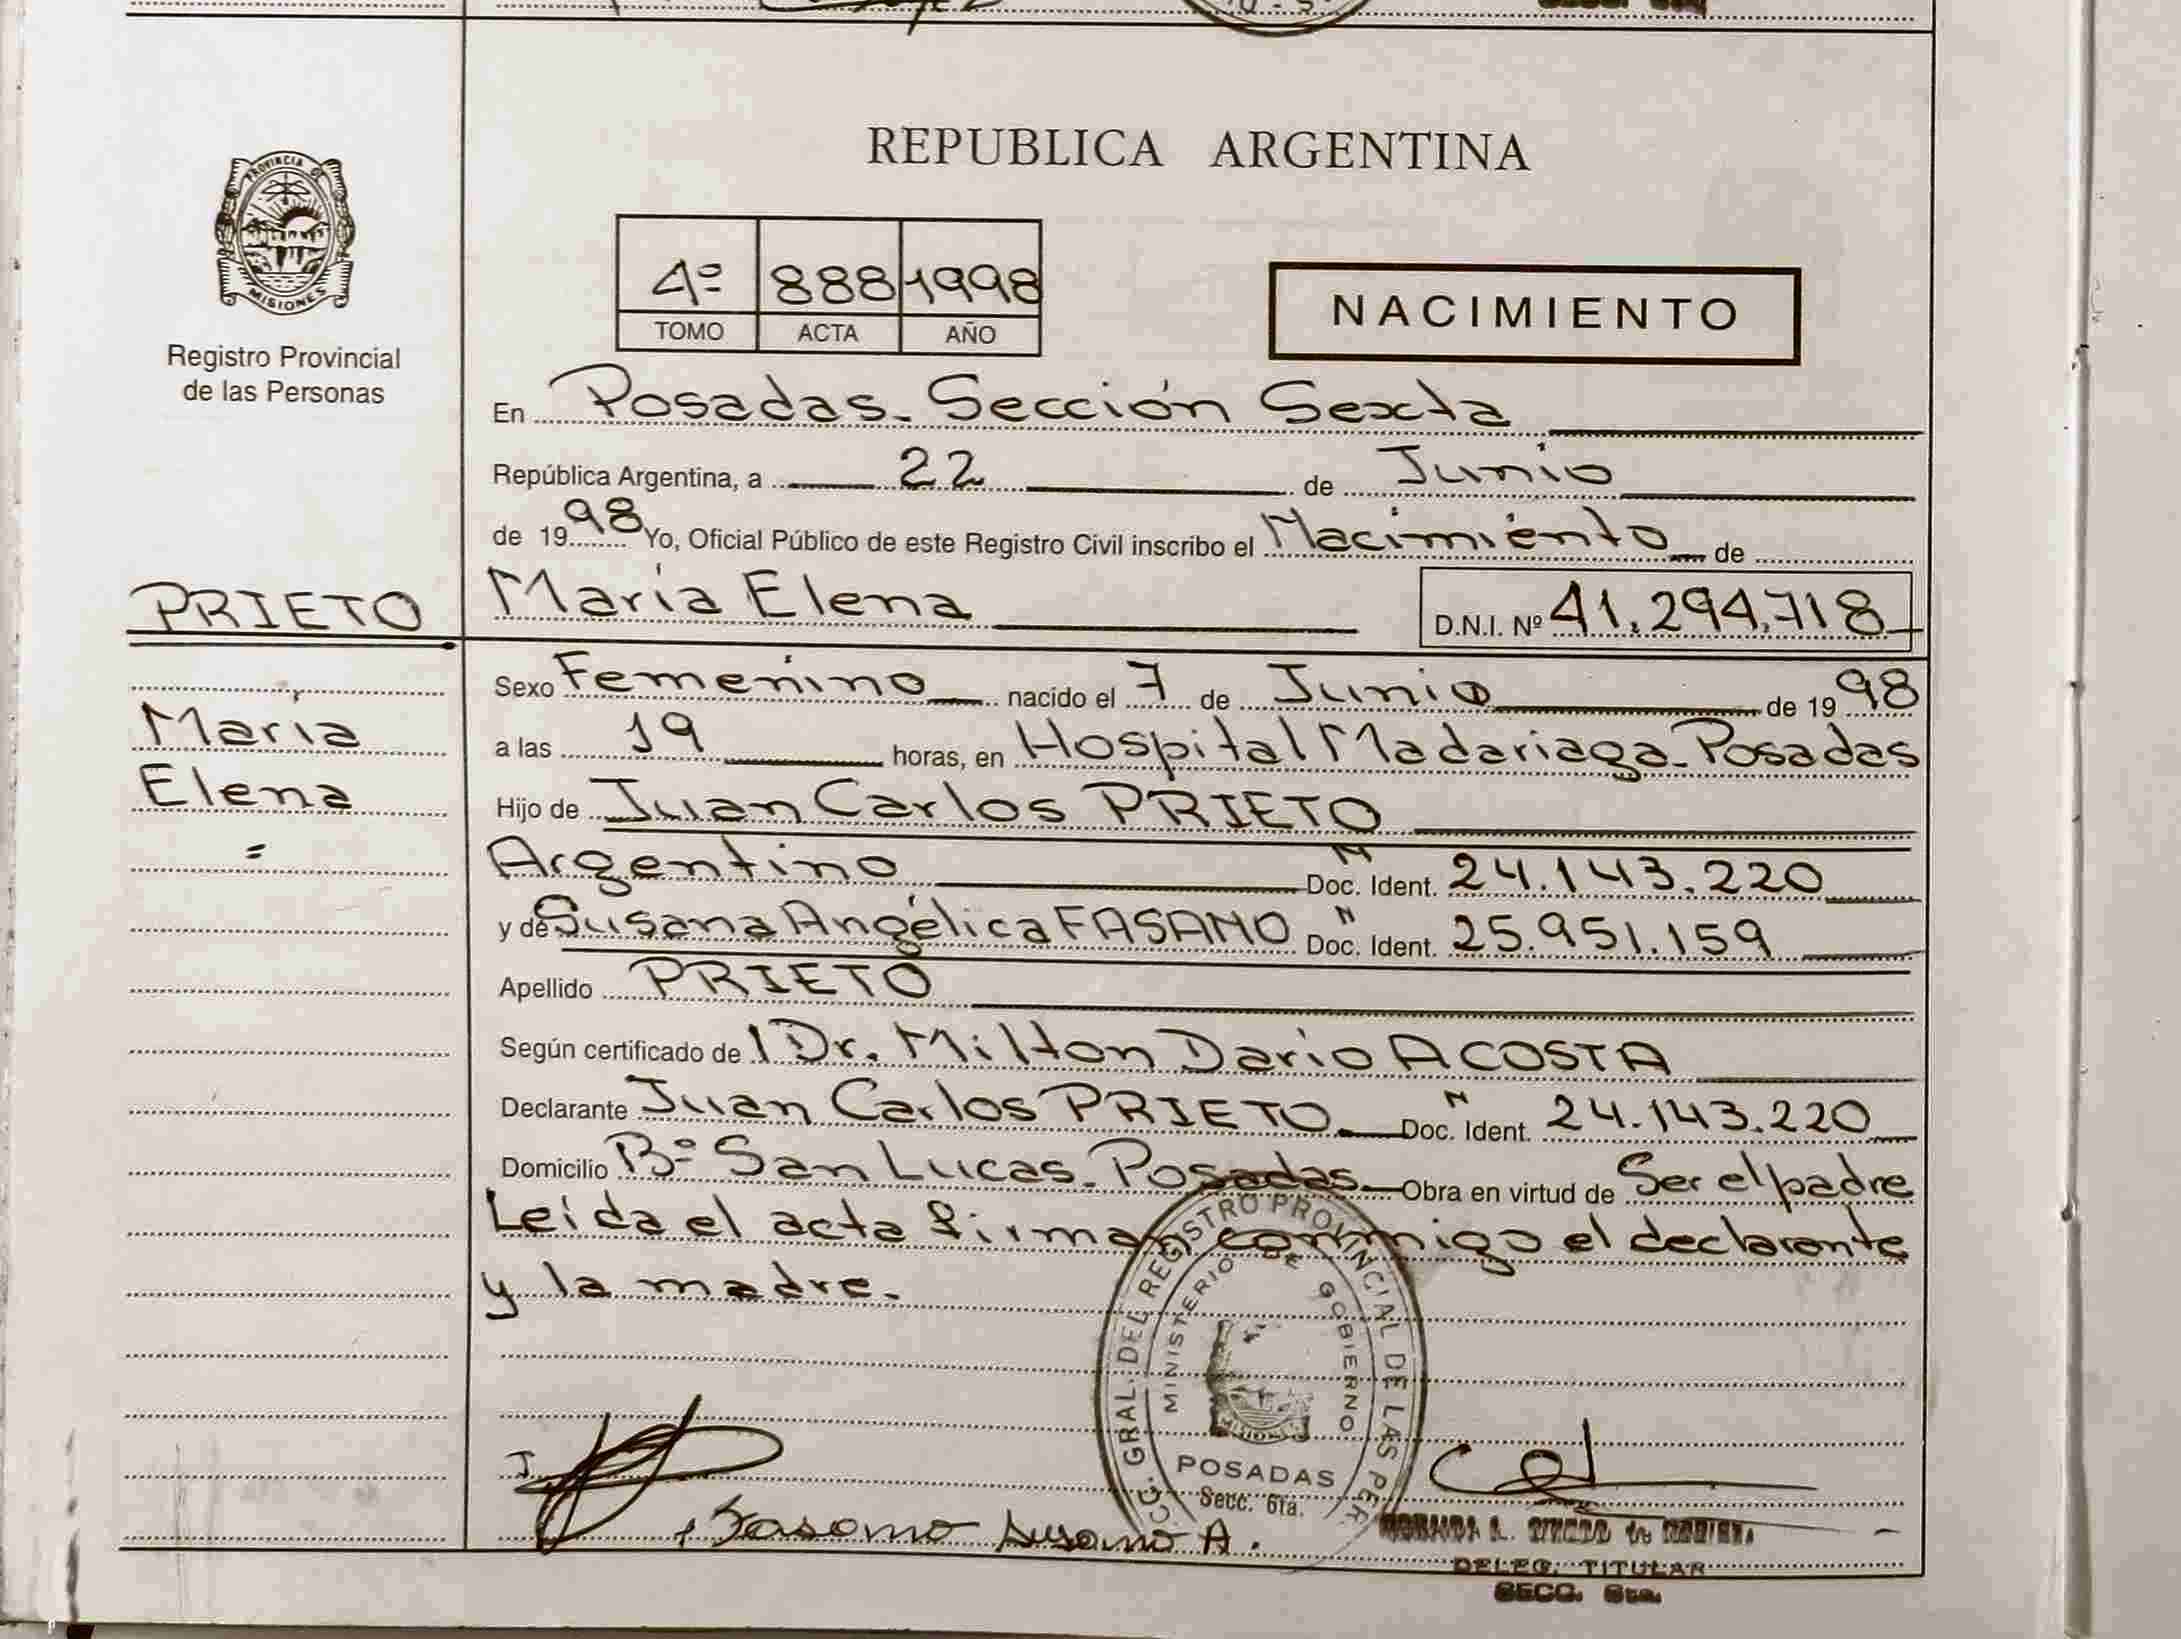 REPUBLICA ARGENTINA
PROVINCIA DE
MISIONES
Registro Provincial
de las Personas
4º 888 1998
TOMO ACTA AÑO
NACIMIENTO
En Posadas. Sección Sexta
República Argentina, a 22 de Junio
de 1998 Yo, Oficial Público de este Registro Civil inscribo el Nacimiento de
PRIETO
María Elena D.N.I. Nº 41.294.718
María
Elena
Sexo Femenino nacido el 7 de Junio de 1998
a las 19 horas, en Hospital Madariaga - Posadas
Hijo de Juan Carlos PRIETO
Argentino Doc. Ident. N 24.143.220
y de Susana Angélica FASANO Doc. Ident. N 25.951.159
Apellido PRIETO
Según certificado de l Dr. Milton Dario ACOSTA
Declarante Juan Carlos PRIETO Doc. Ident. N 24.143.220
Domicilio Bº San Lucas. Posadas Obra en virtud de Ser el padre
Leída el acta firman conmigo el declarante
y la madre.
GRAL. DEL REGISTRO PROVINCIAL DE LAS PER
MINISTERIO DE GOBIERNO
POSADAS
Secc. 6ta.
Fasano Susana A.
DELEG. TITULAR
SECC. 6ta.